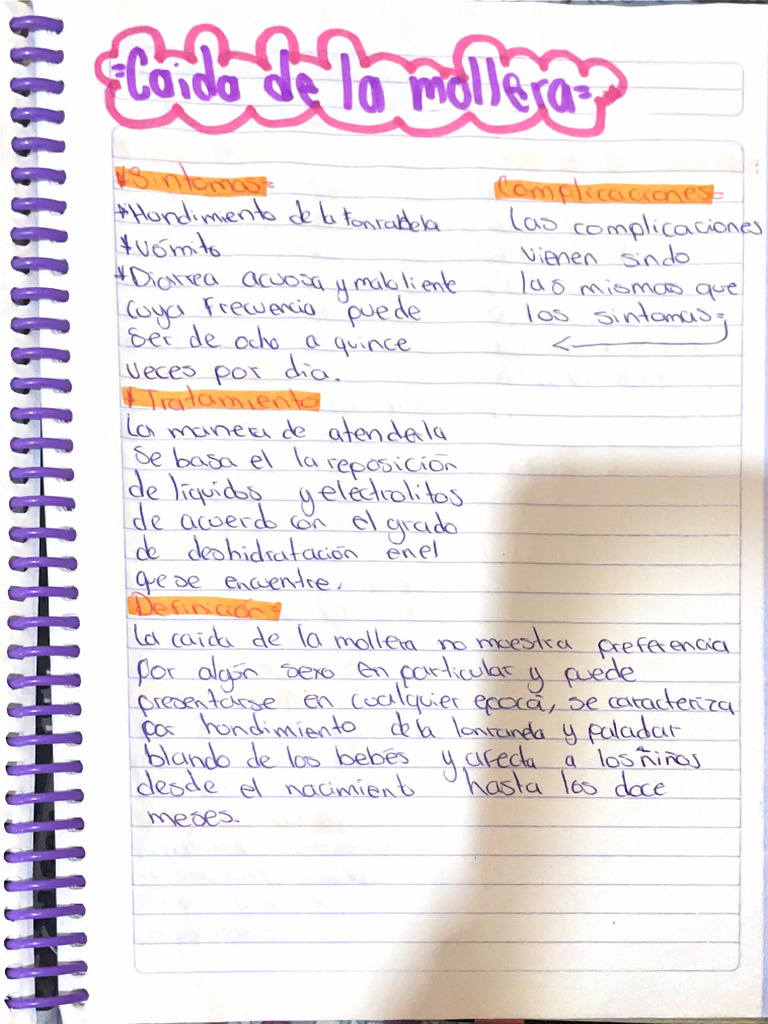 =Caida de la mollera=
*Sintomas=
*Hundimiento de la fontanela
*Vómito
*Diarrea acuosa y maloliente
cuya frecuencia puede
ser de ocho a quince
veces por día.
*Tratamiento
La manera de atenderla
se basa el la reposición
de líquidos y electrolitos
de acuerdo con el grado
de deshidratación en el
que se encuentre.
Complicaciones=
las complicaciones
vienen sindo
las mismas que
los sintomas;
Definición=
la caida de la mollera no muestra preferencia
por algún sexo en particular y puede
presentarse en cualquier epoca, se caracteriza
por hundimiento de la y paladar
blando de los bebés y afecta a los niños
desde el nacimient hasta los doce
meses.